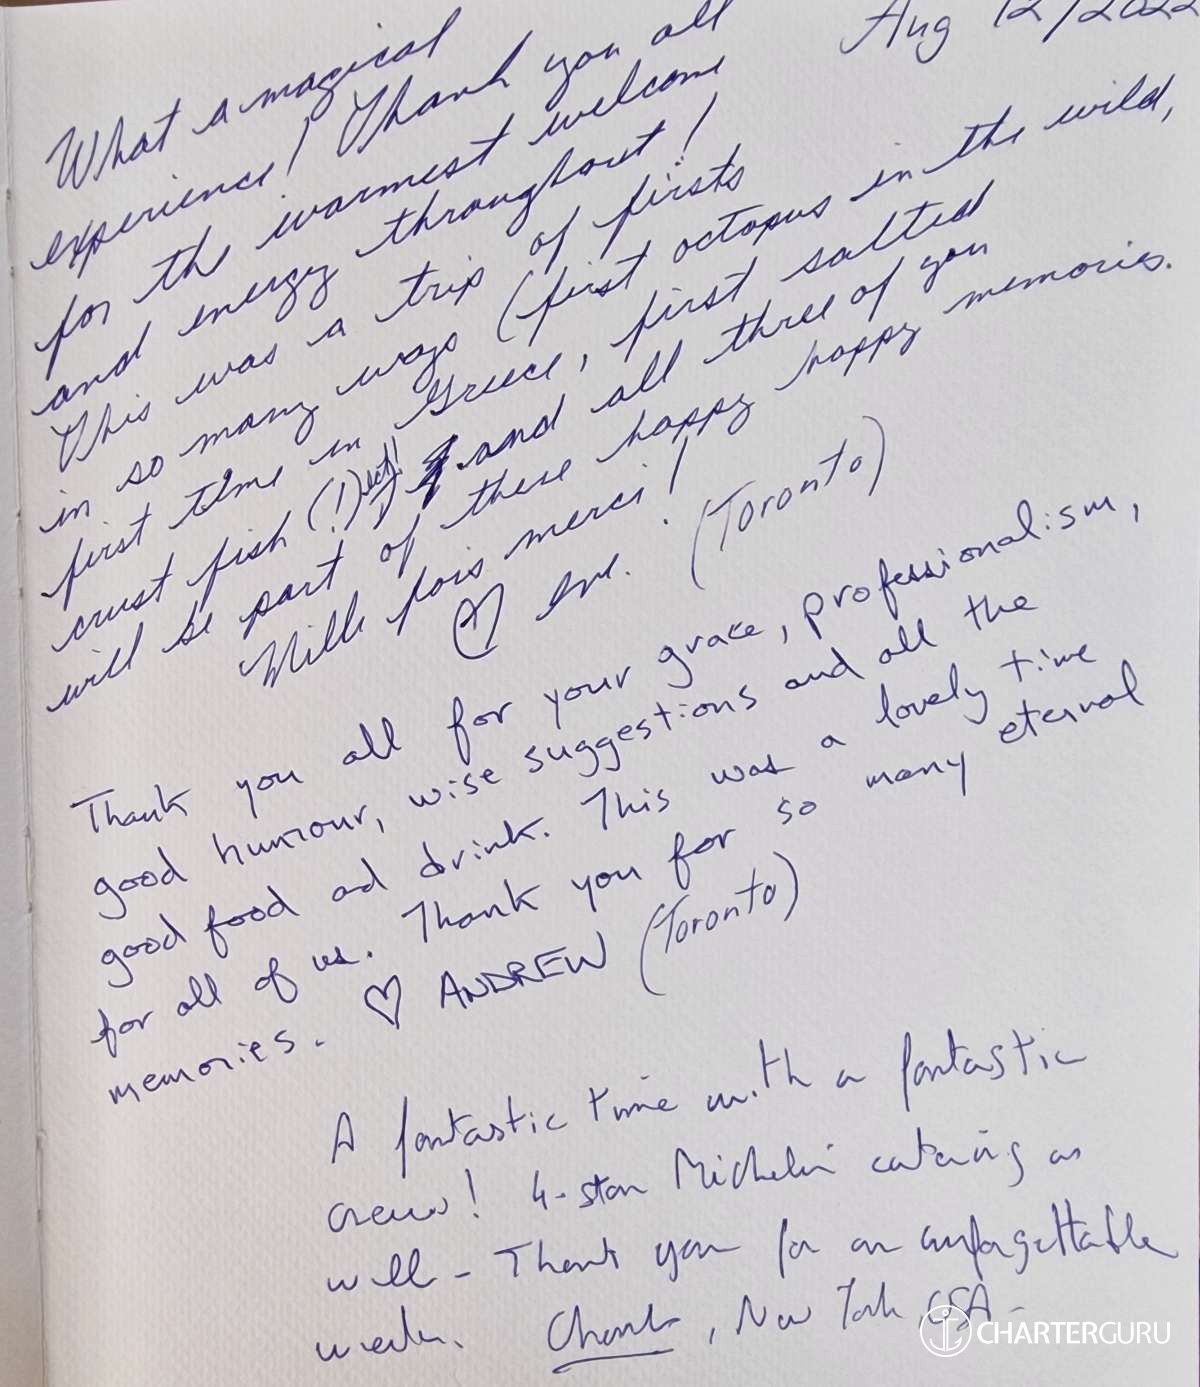 Aug 12/2022
What a magical
experience! Thank you all
for the warmest welcome
and energy throughout!
This was a trip of firsts
in so many ways (first octopus in the wild,
first time in Greece, first salted
crust fish (!) and all three of you
will be part of these happy happy memories.
Mille fois merci!
♡ Eve. (Toronto)
Thank you all for your grace, professionalism,
good humour, wise suggestions and all the
good food and drink. This was a lovely time
for all of us. Thank you for so many eternal
memories. ♡ ANDREW (Toronto)
A fantastic time with a fantastic
crew! 4-star Michelin catering as
well - Thank you for an unforgettable
week. , New York, USA -
CHARTERGURU